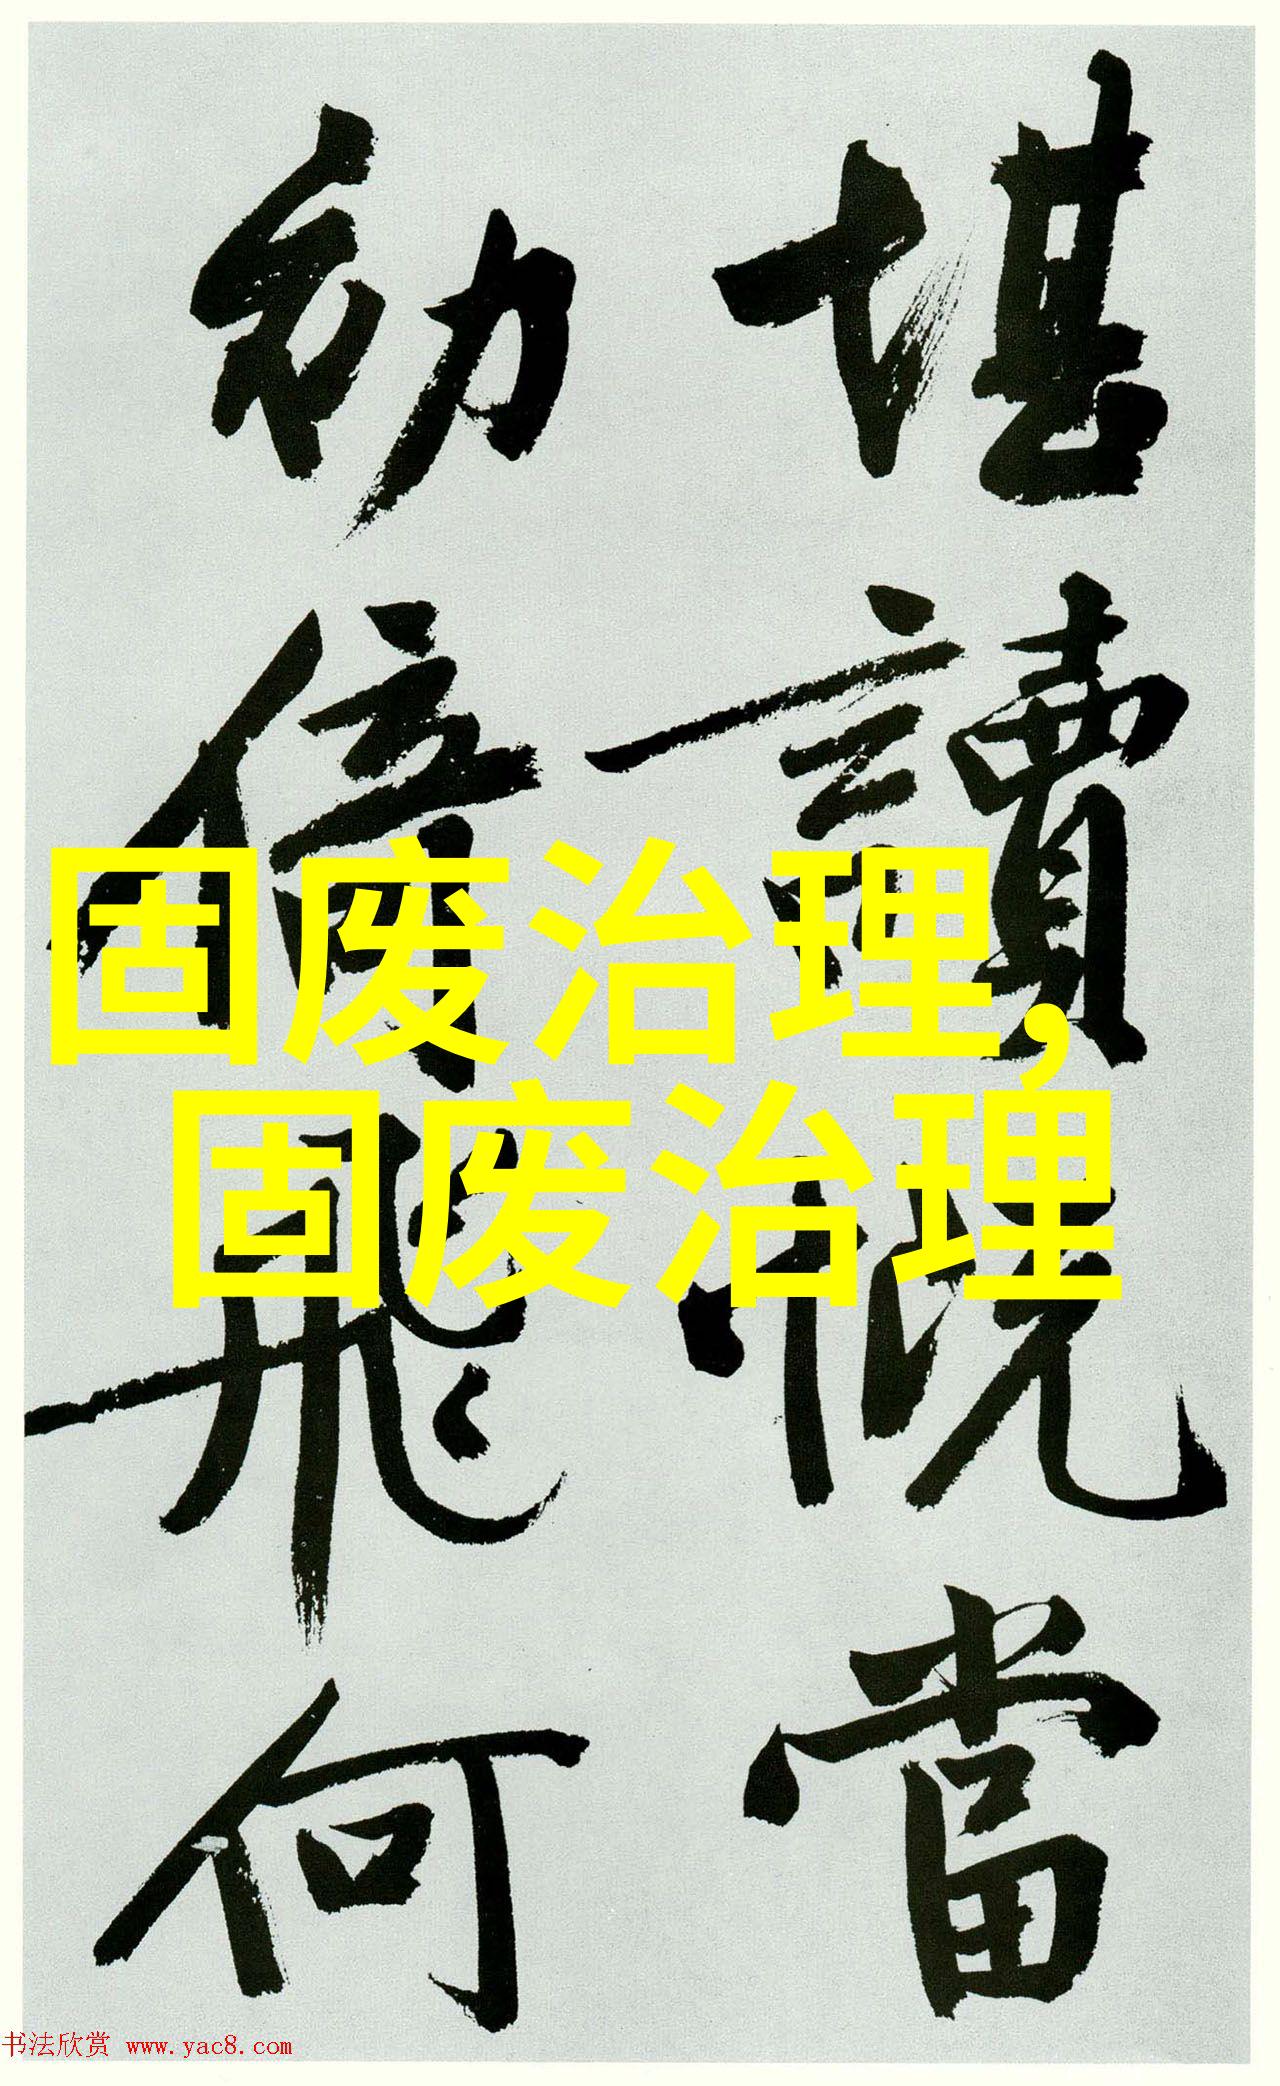 堪讀慨當
幼飛何
固废治理,
固废治理
书法欣赏 www.yac8.com